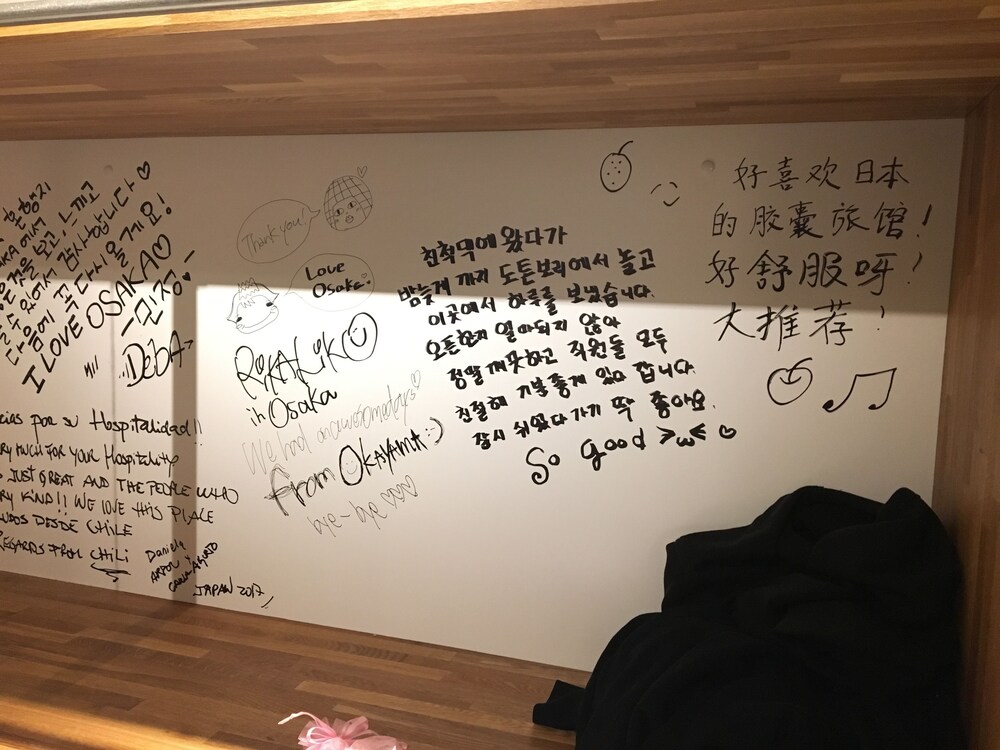 보고 느끼고
있어서 감사합니다♡
다음에 꼭 다시 올게요!
I LOVE OSAKA♡
-민정-
DebA
por su Hospitalidad!!
MUCH FOR YOUR HOSPITALITY
JUST GREAT AND THE PEOPLE WHO
KIND!! WE LOVE THIS PLACE
DESDE CHILE
REGARDS FROM CHILI
Daniela
JAPAN 2017
Thank you!
Love
Osaka.
in Osaka
We had an awesome days♡
From OKAYAMA :)
bye-bye ♡♡♡
친척덕에 왔다가
밤늦게 까지 도톤보리에서 놀고
이곳에서 하루를 보냈습니다.
오픈한지 얼마되지 않아
정말 깨끗하고 직원들 모두
친절해 기분좋게 있다 갑니다.
잠시 쉬었다 가기 딱 좋아요.
So good >ω< ♡
好喜欢日本
的胶囊旅馆!
好舒服呀!
大推荐!